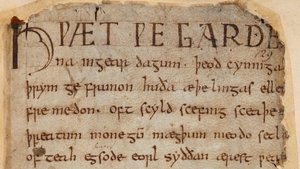 HÞÆT ǷE GARDE
na ingear dagum. þeod cyninga
þrym ge frunon huða æþelingas elle
fre medon. oft scyld scefing sceaþe
þreatum monegū mægþum meodo setla
of teah egsode eorl syððan ærest